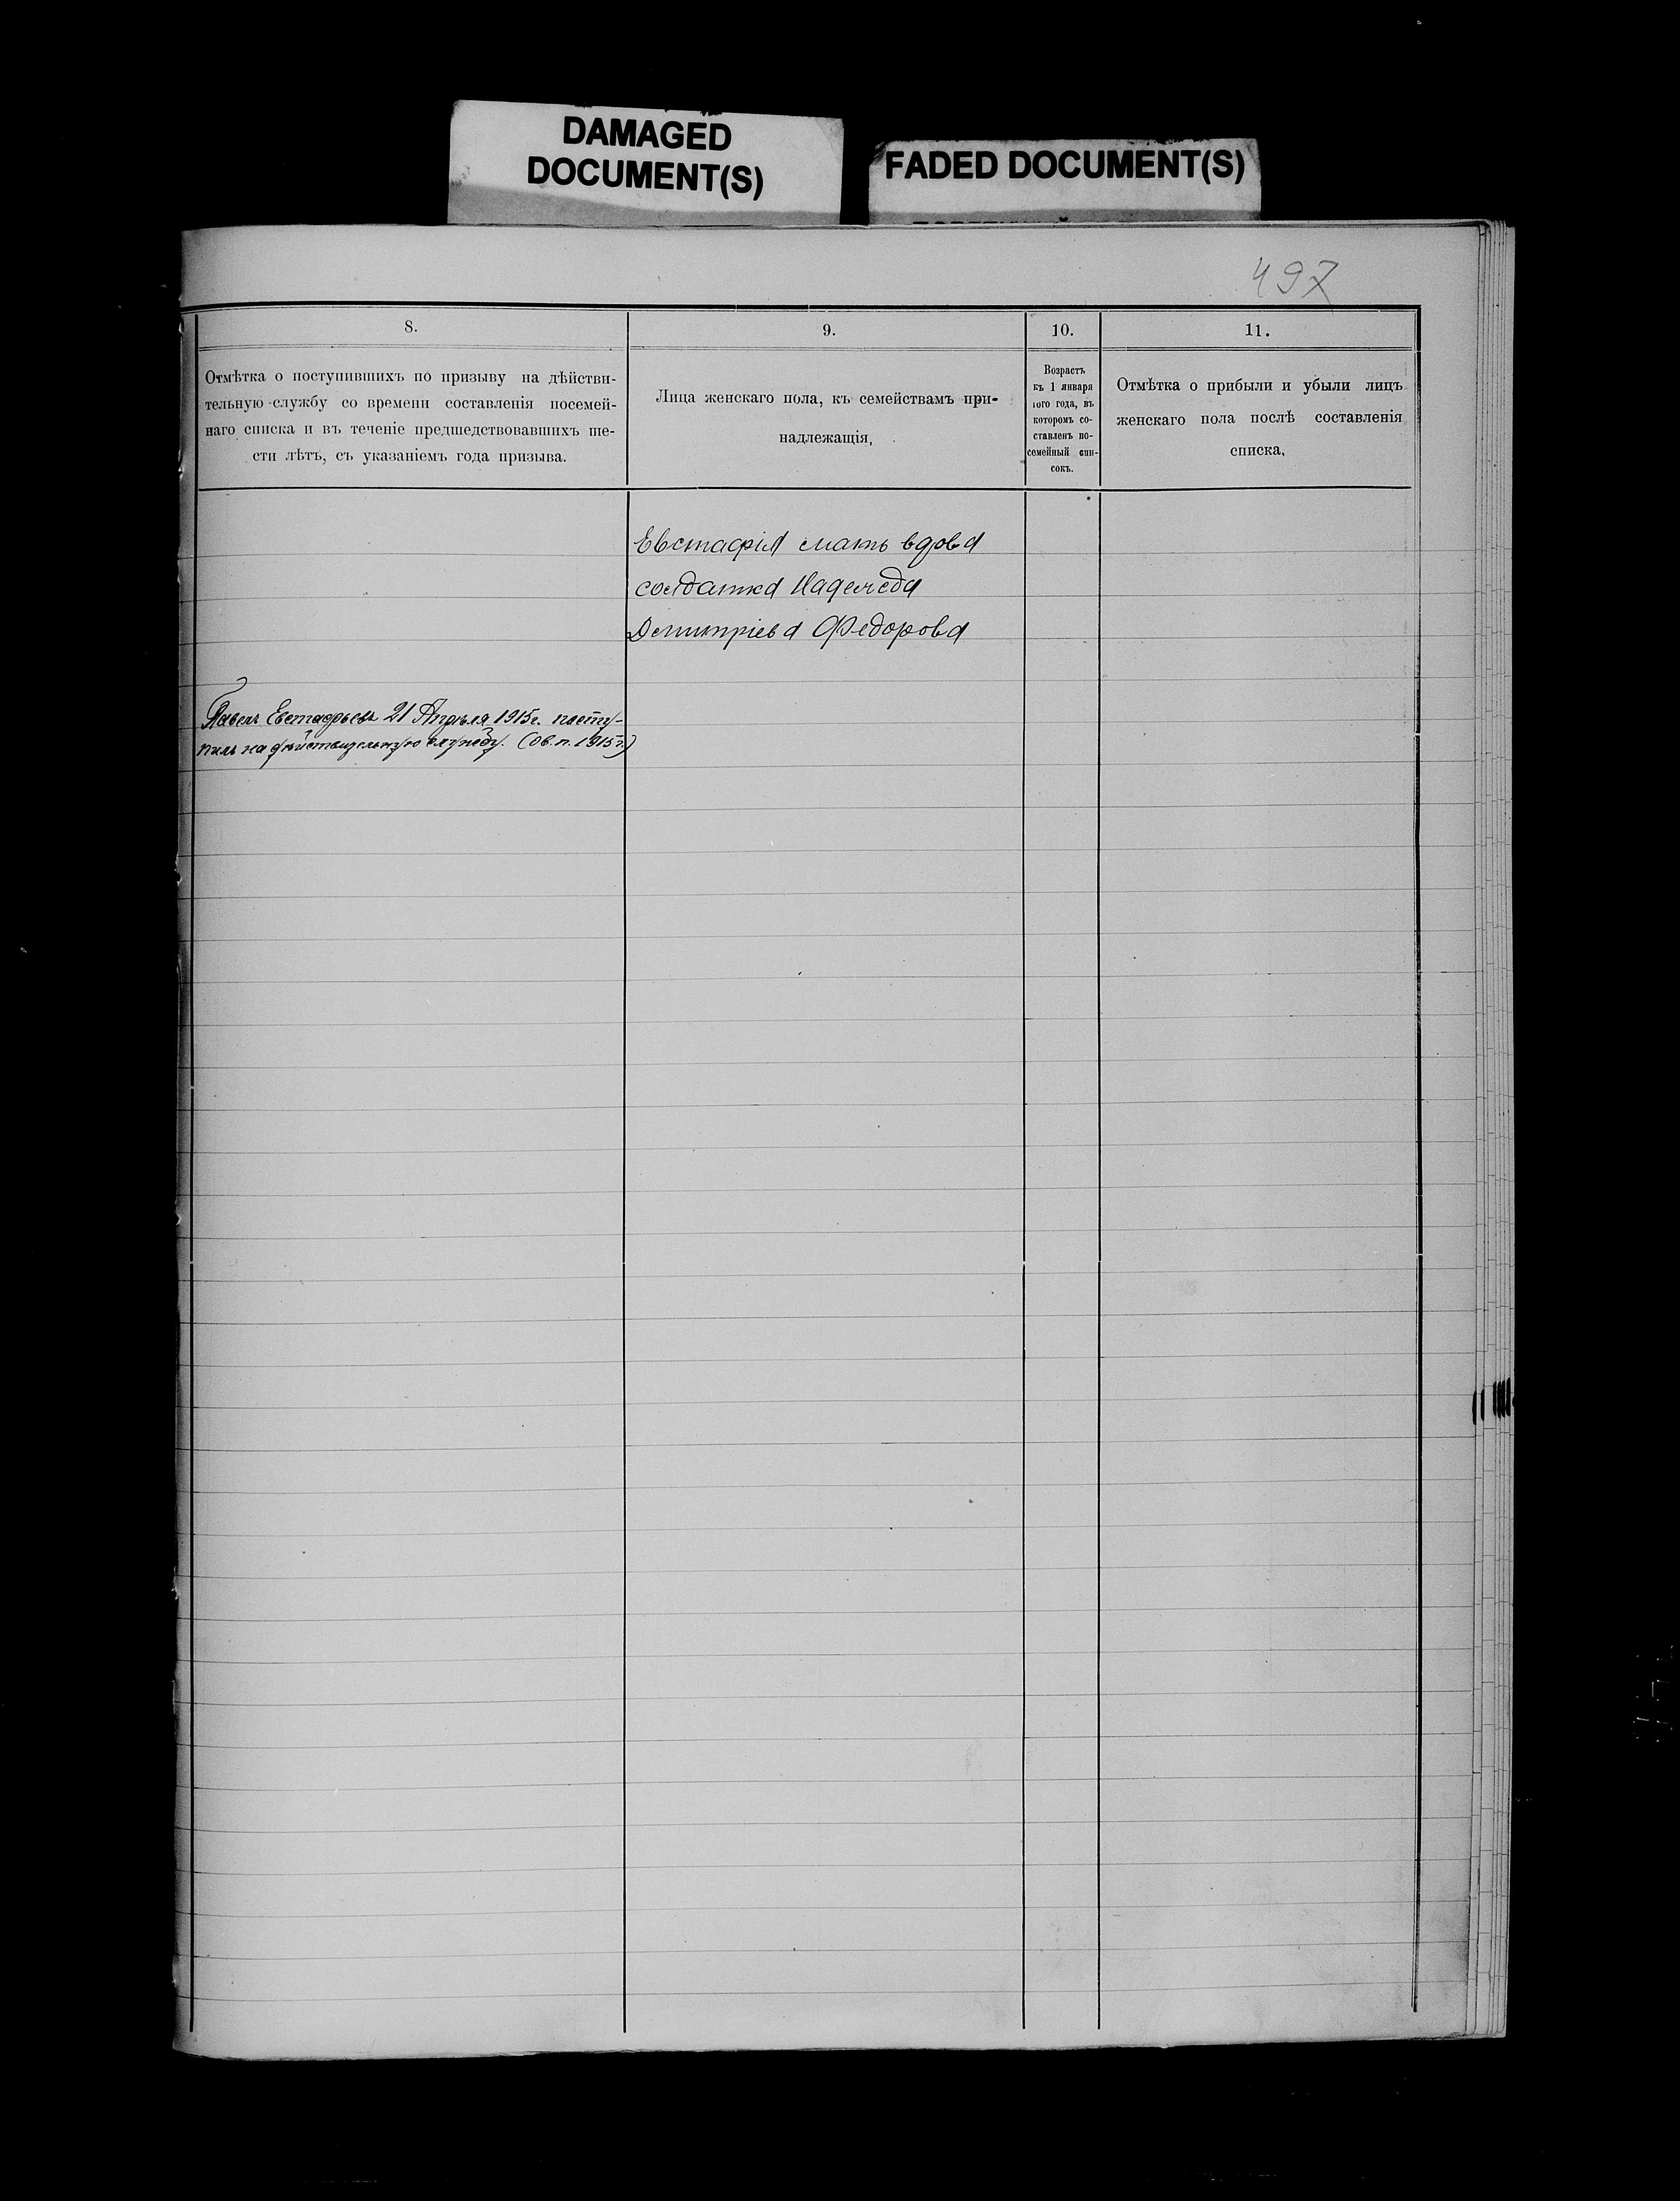 DAMAGED
DOCUMENT(S)
FADED DOCUMENT(S)
497
8.
Отмѣтка о поступившихъ по призыву на дѣйстви-
тельную службу со времени составленія посемей-
наго списка и въ теченіе предшедствовавшихъ ше-
сти лѣтъ, съ указаніемъ года призыва.
9.
Лица женскаго пола, къ семействамъ при-
надлежащія,
10.
Возрастъ
къ 1 января
того года, въ
которомъ со-
ставленъ по-
семейный спи-
сокъ.
11.
Отмѣтка о прибыли и убыли лицъ
женскаго пола послѣ составленія
списка,
Евстафія мать вдова
солдатка Надежда
Дмитріева Федорова
Павелъ Евстафьевъ 21 Апрѣля 1915г. посту-
пилъ на дѣйствительную службу. 1915г.)